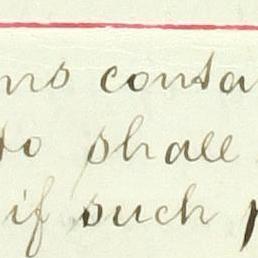 ns conta
to shall
if such